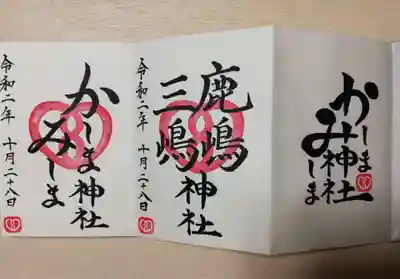 かしま
みしま
神社
鹿嶋
三嶋
神社
令和二年 十月二十八日
かしま
みしま
神社
令和二年 十月二十八日